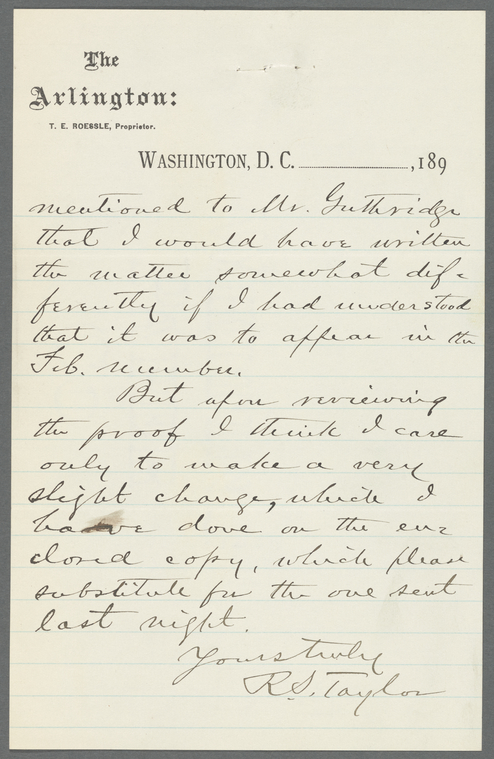 The
Arlington:
T. E. ROESSLE, Proprietor.
WASHINGTON, D. C. ..............................., 189
mentioned to Mr. Guthridge
that I would have written
the matter somewhat dif=
ferently if I had understood
that it was to appear in the
Feb. number.
But upon reviewing
the proof I think I care
only to make a very
slight change, which I
have done on the en=
closed copy, which please
substitute for the one sent
last night.
Yours truly
R. S. Taylor